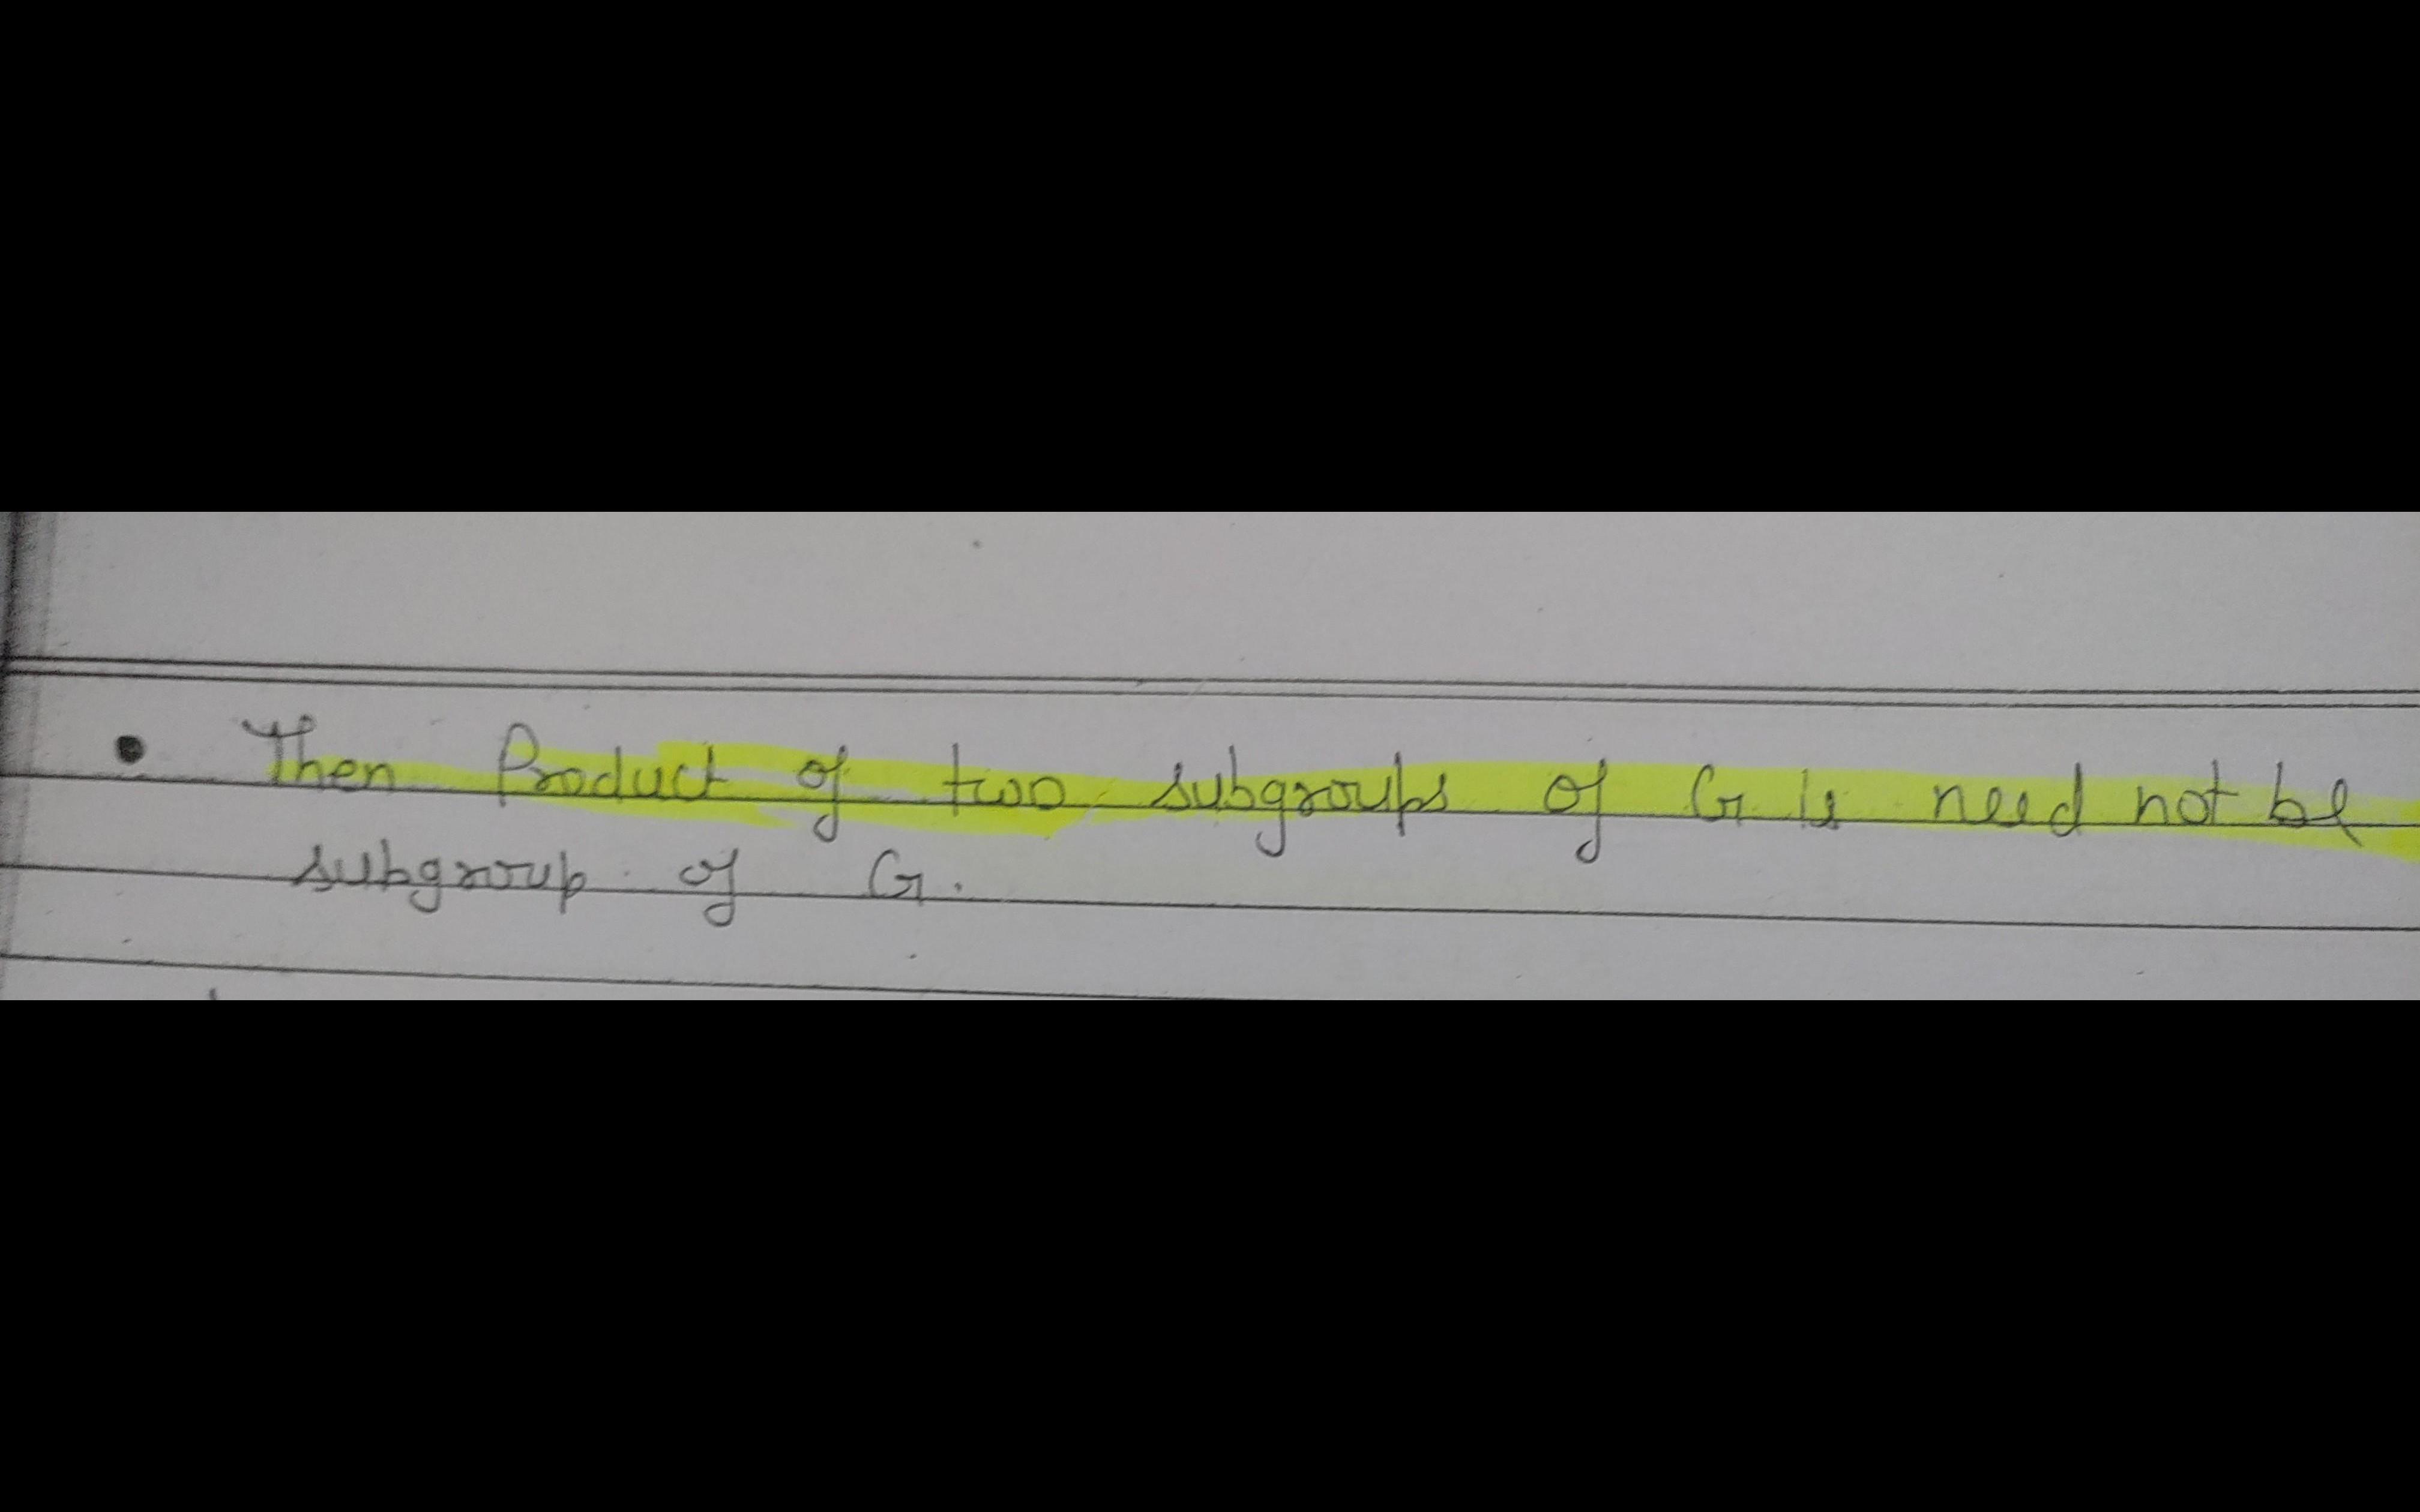 • Then Product of two subgroups of G is need not be
subgroup of G.